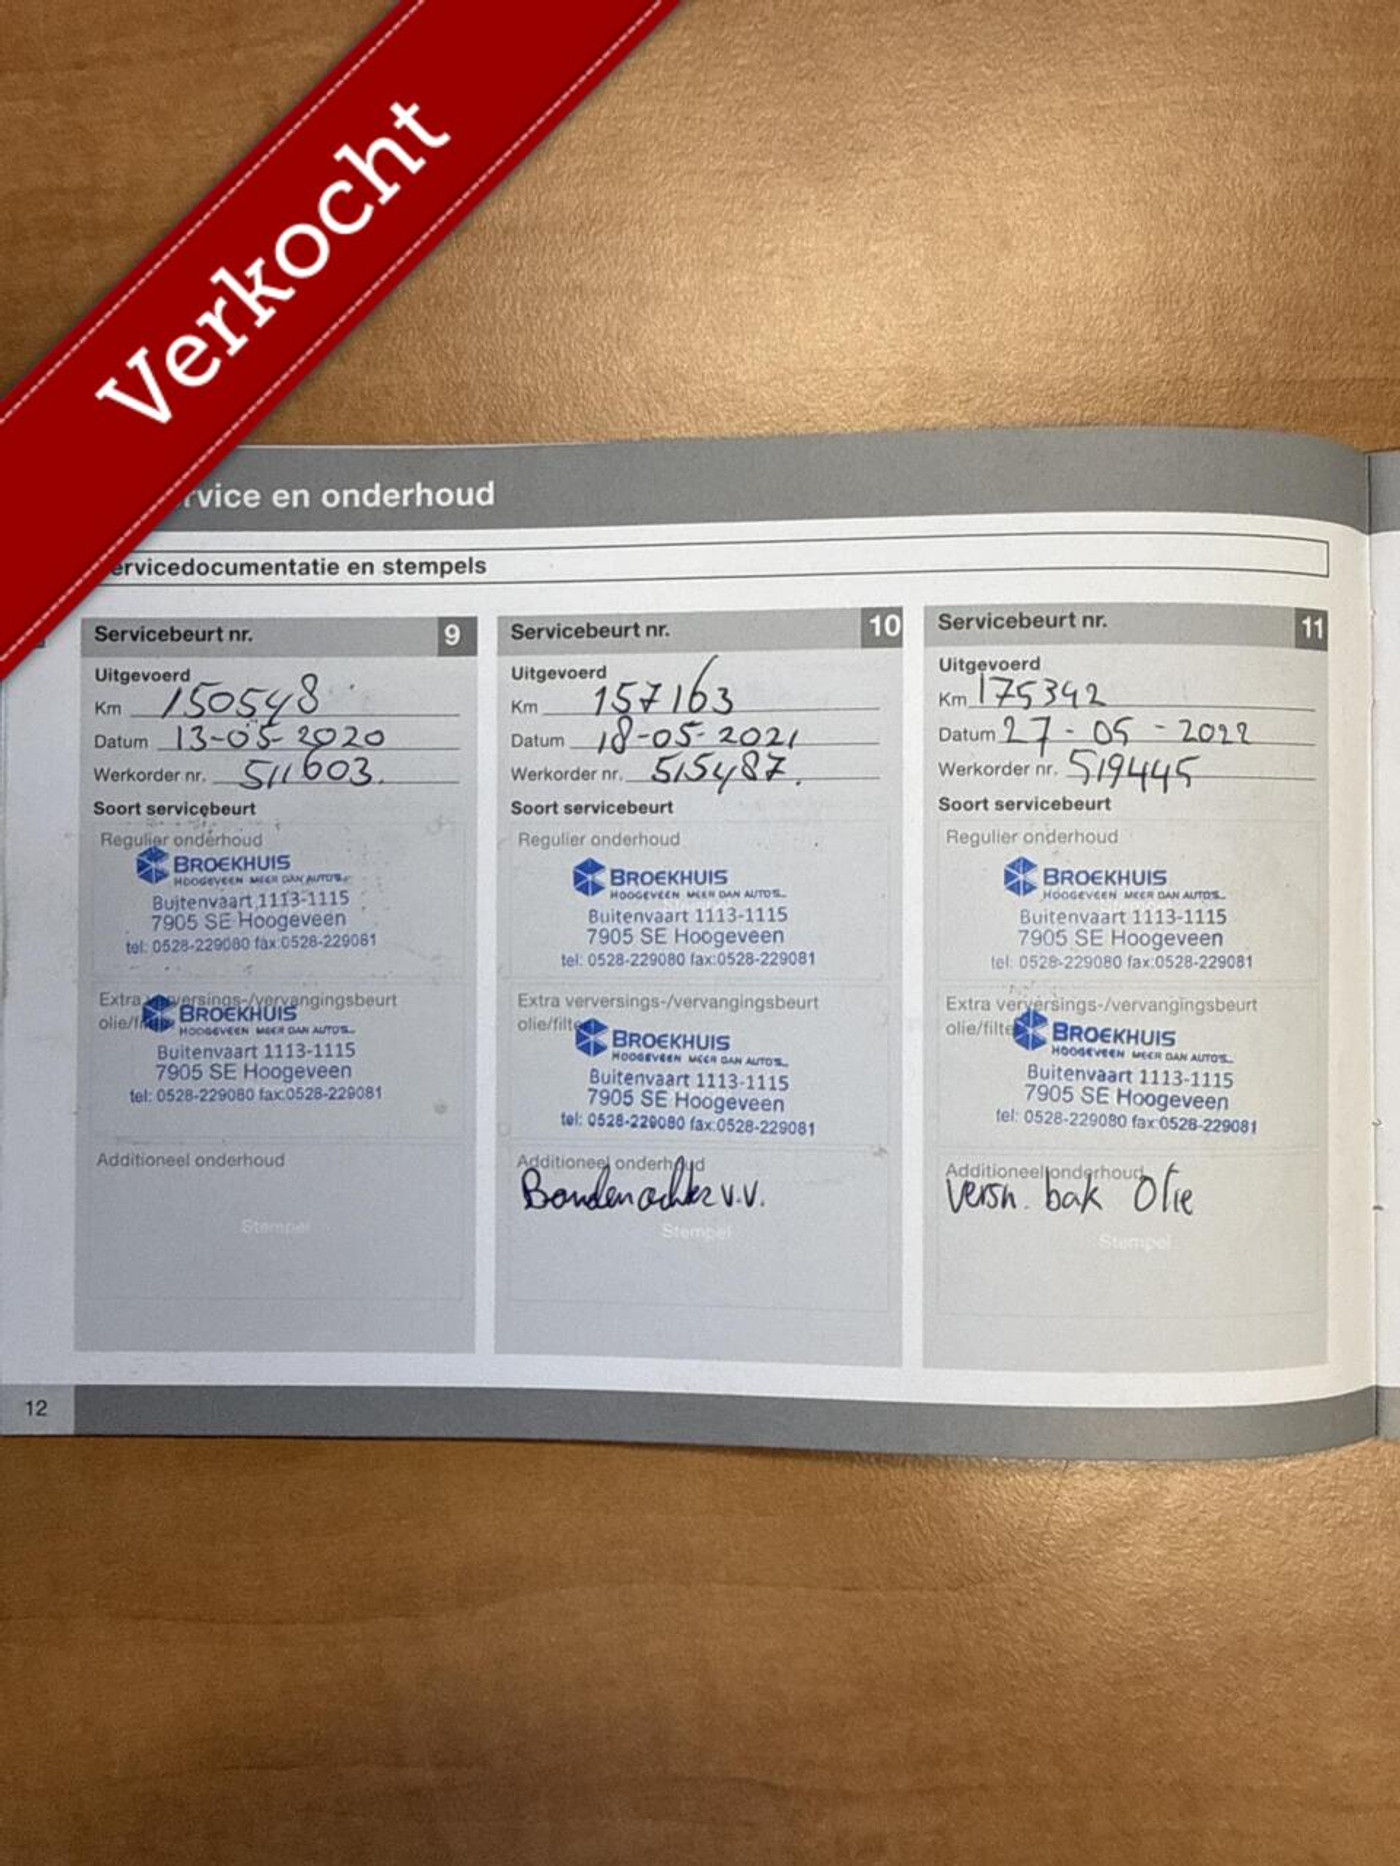 Verkocht
rvice en onderhoud
ervicedocumentatie en stempels
Servicebeurt nr. 9
Uitgevoerd
Km 150548
Datum 13-05-2020
Werkorder nr. 511603.
Soort servicebeurt
Regulier onderhoud
BROEKHUIS
HOOGEVEEN MEER DAN AUTO'S..
Buitenvaart 1113-1115
7905 SE Hoogeveen
tel: 0528-229080 fax:0528-229081
Extra verversings-/vervangingsbeurt
olie/f
BROEKHUIS
HOOGEVEEN MEER DAN AUTO'S..
Buitenvaart 1113-1115
7905 SE Hoogeveen
tel: 0528-229080 fax:0528-229081
Additioneel onderhoud
Stempel
Servicebeurt nr. 10
Uitgevoerd
Km 157163
Datum 18-05-2021
Werkorder nr. 515487.
Soort servicebeurt
Regulier onderhoud
BROEKHUIS
HOOGEVEEN MEER DAN AUTO'S..
Buitenvaart 1113-1115
7905 SE Hoogeveen
tel: 0528-229080 fax:0528-229081
Extra verversings-/vervangingsbeurt
olie/filte
BROEKHUIS
HOOGEVEEN MEER DAN AUTO'S..
Buitenvaart 1113-1115
7905 SE Hoogeveen
tel: 0528-229080 fax:0528-229081
Additioneel onderhoud
Banden achter v.v.
Stempel
Servicebeurt nr. 11
Uitgevoerd
Km 175342
Datum 27-05-2022
Werkorder nr. 519445
Soort servicebeurt
Regulier onderhoud
BROEKHUIS
HOOGEVEEN MEER DAN AUTO'S..
Buitenvaart 1113-1115
7905 SE Hoogeveen
tel: 0528-229080 fax:0528-229081
Extra verversings-/vervangingsbeurt
olie/filte
BROEKHUIS
HOOGEVEEN MEER DAN AUTO'S..
Buitenvaart 1113-1115
7905 SE Hoogeveen
tel: 0528-229080 fax:0528-229081
Additioneel onderhoud
Versn. bak Olie
Stempel
12